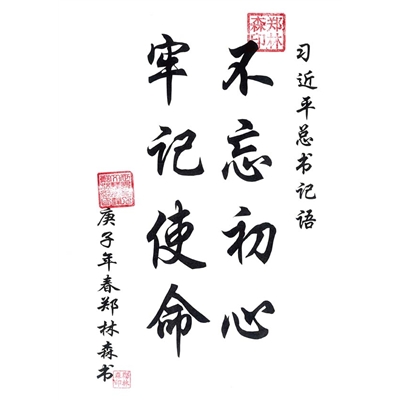 习近平总书记语
不忘初心
牢记使命
庚子年春郑林森书
郑林
森印